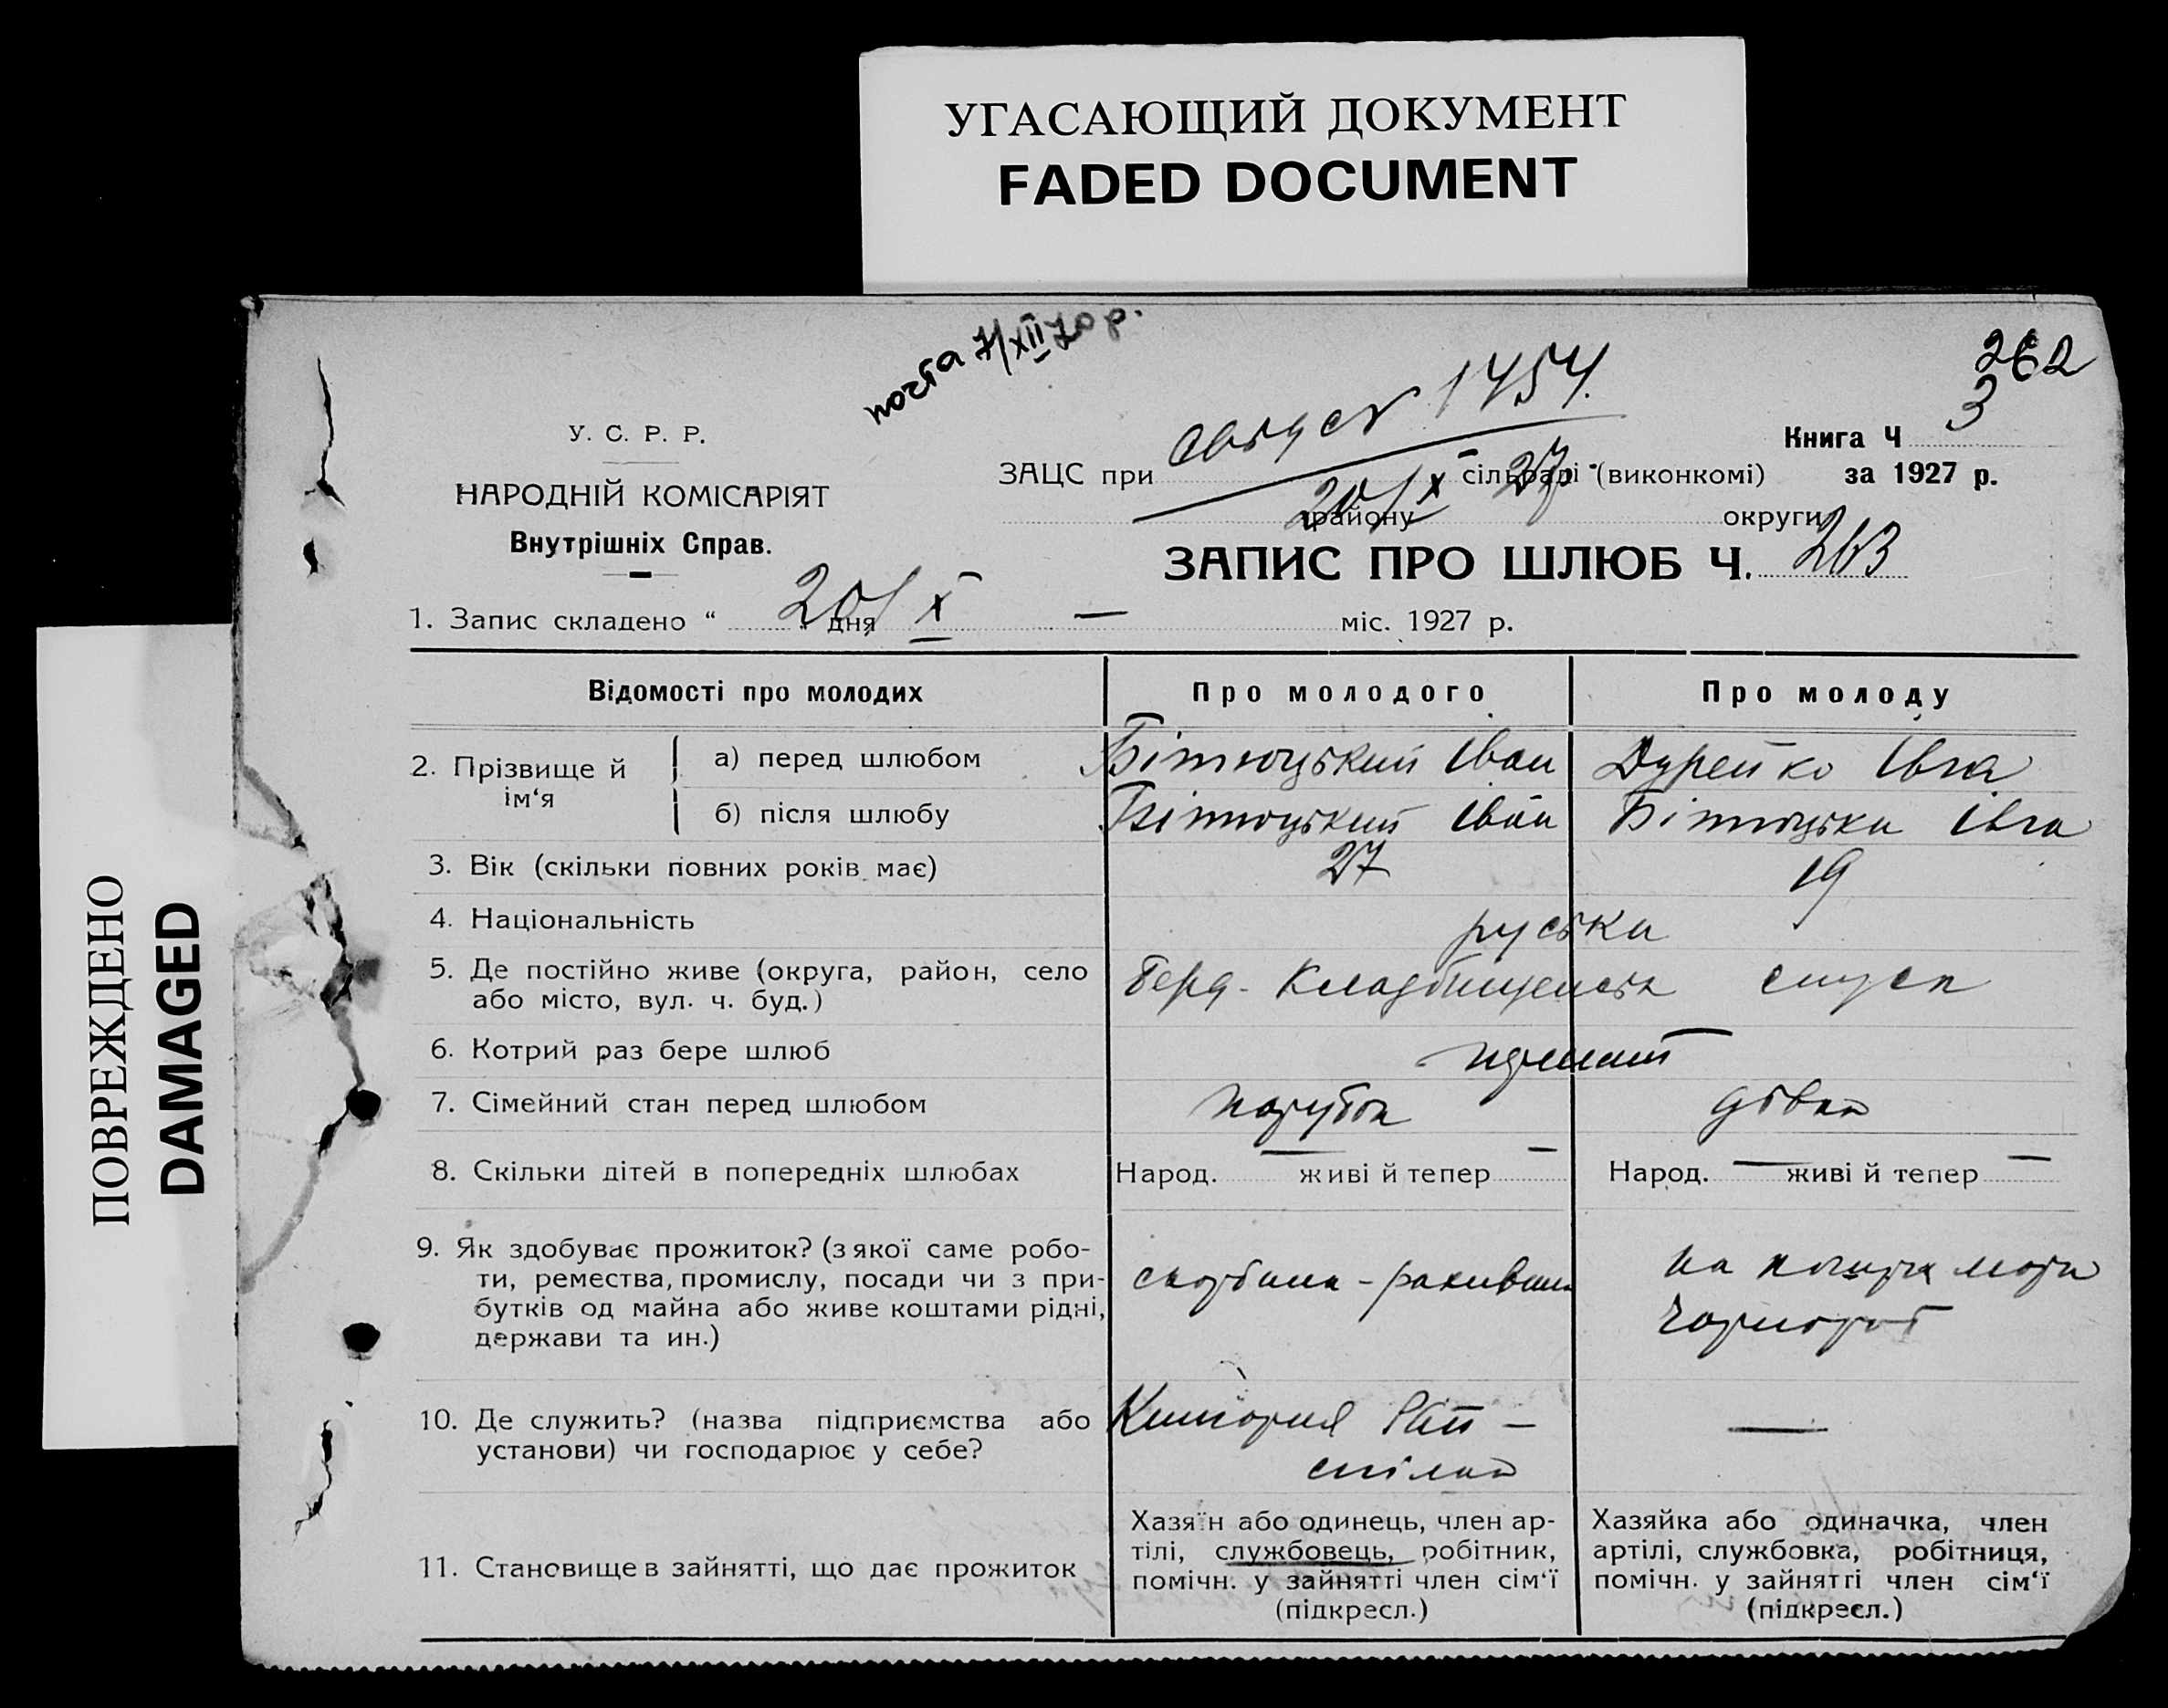 УГАСАЮЩИЙ ДОКУМЕНТ
FADED DOCUMENT
ПОВРЕЖДЕНО
DAMAGED
262
1454.
У. С. Р. Р.
НАРОДНІЙ КОМІСАРІЯТ
Внутрішніх Справ.
Книга Ч 3
за 1927 р.
ЗАЦС при сільраді (виконкомі)
20/X 27
району округи
ЗАПИС ПРО ШЛЮБ Ч. 263
1. Запис складено “ 20/X „ дня — міс. 1927 р.
Відомості про молодих Про молодого Про молоду
2. Прізвище й ім‘я
а) перед шлюбом Бітюцький Іван Дурейко Івга
б) після шлюбу Бітюцький Іван Бітюцька Івга
3. Вік (скільки повних років має) 27 19
4. Національність руська
5. Де постійно живе (округа, район, село
або місто, вул. ч. буд.)
6. Котрий раз бере шлюб
7. Сімейний стан перед шлюбом парубок дівка
8. Скільки дітей в попередніх шлюбах Народ. — живі й тепер — Народ. — живі й тепер —
9. Як здобуває прожиток? (з якої саме робо-
ти, ремества, промислу, посади чи з при-
бутків од майна або живе коштами рідні,
держави та ин.)
10. Де служить? (назва підприємства або
установи) чи господарює у себе? —
11. Становище в зайнятті, що дає прожиток
Хазяїн або одинець, член ар-
тілі, службовець, робітник,
помічн. у зайнятті член сім‘ї
(підкресл.)
Хазяйка або одиначка, член
артілі, службовка, робітниця,
помічн. у зайнятті член сім‘ї
(підкресл.)